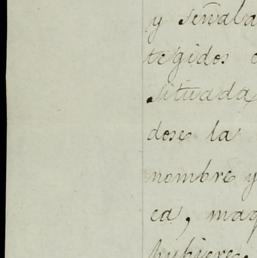 y señala
tegidos
situada
dose la
nombre y
ca, maq
hubiere